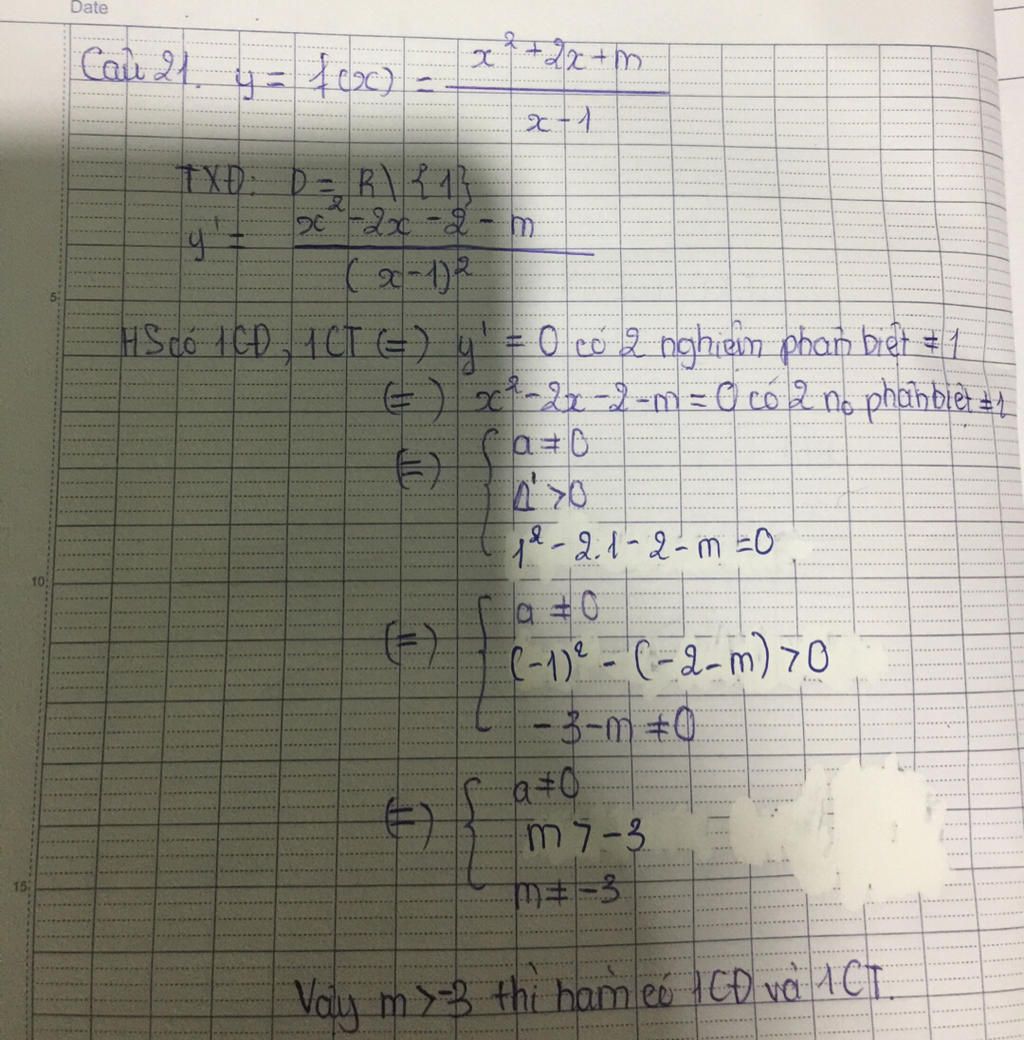 Date
Câu 21. y = f(x) = x² + 2x + m / x - 1
TXĐ: D = R \ {1}
y' = x² - 2x - 2 - m / (x - 1)²
5
HS có 1CĐ, 1CT (=) y' = 0 có 2 nghiệm phân biệt ≠ 1
(=) x² - 2x - 2 - m = 0 có 2 no phân biệt ≠ 1
(=) { a ≠ 0
Δ' > 0
1² - 2.1 - 2 - m = 0
10
(=) { a ≠ 0
(-1)² - (-2 - m) > 0
-3 - m ≠ 0
(=) { a ≠ 0
m > -3
15
m ≠ -3
Vậy m > -3 thì hàm có 1CĐ và 1CT.